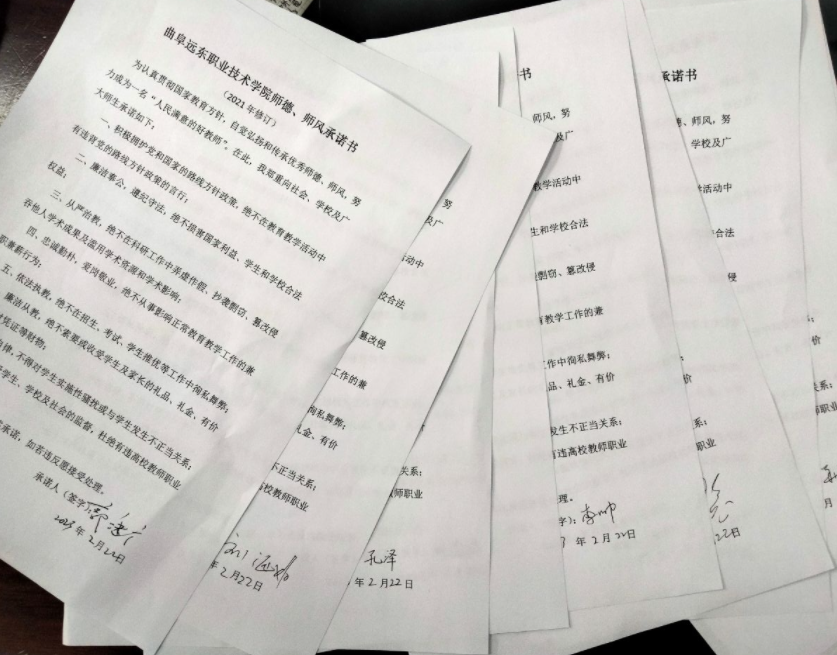 曲阜远东职业技术学院师德、师风承诺书
（2021年修订）
为认真贯彻国家教育方针，自觉弘扬和传承优秀师德、师风，努
力成为一名“人民满意的好教师”。在此，我郑重向社会、学校及广
大师生承诺如下：
一、积极拥护党和国家的路线方针政策，绝不在教育教学活动中
有违背党的路线方针政策的言行；
二、廉洁奉公，遵纪守法，绝不损害国家利益、学生和学校合法
权益；
三、从严治教，绝不在科研工作中弄虚作假、抄袭剽窃、篡改侵
吞他人学术成果及滥用学术资源和学术影响；
四、忠诚勤朴，爱岗敬业，绝不从事影响正常教育教学工作的兼
职兼薪行为；
五、依法执教，绝不在招生、考试、学生推优等工作中徇私舞弊；
廉洁从教，绝不索要或收受学生及家长的礼品、礼金、有价
凭证等财物；
自律，不得对学生实施性骚扰或与学生发生不正当关系；
学生、学校及社会的监督，杜绝有违高校教师职业
承诺，如若违反愿接受处理。
承诺人（签字）：
2023年2月22日
努
及广
动中
校合法
篡改侵
工作的兼
徇私舞弊；
礼金、有价
不正当关系；
高校教师职业
年2月22日
关系；
师职业
孔泽
年2月22日
书
师风，努
及广
教学活动中
生和学校合法
剽窃、篡改侵
育教学工作的兼
工作中徇私舞弊；
品、礼金、有价
发生不正当关系；
有违高校教师职业
理。
字）：李帅
3年2月22日
承诺书
、师风，努
学校及广
学活动中
合法
侵
兼
价
系；
职业
22日
价
关系；
师职业
月